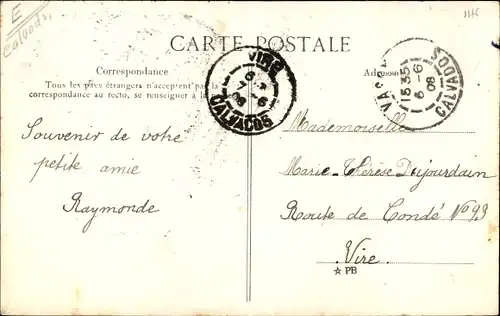 E
Calvados
CARTE POSTALE
Correspondance
Tous les pays étrangers n'acceptent pas la
correspondance au recto, se renseigner à la
Adresse
VIRE
CALVADOS
15 35
6 -6
08
CALVADOS
Souvenir de votre
petite amie
Raymonde
Mademoiselle
Marie-Thérèse Dujourdain
Route de Condé N° 93
Vire
☆ PB